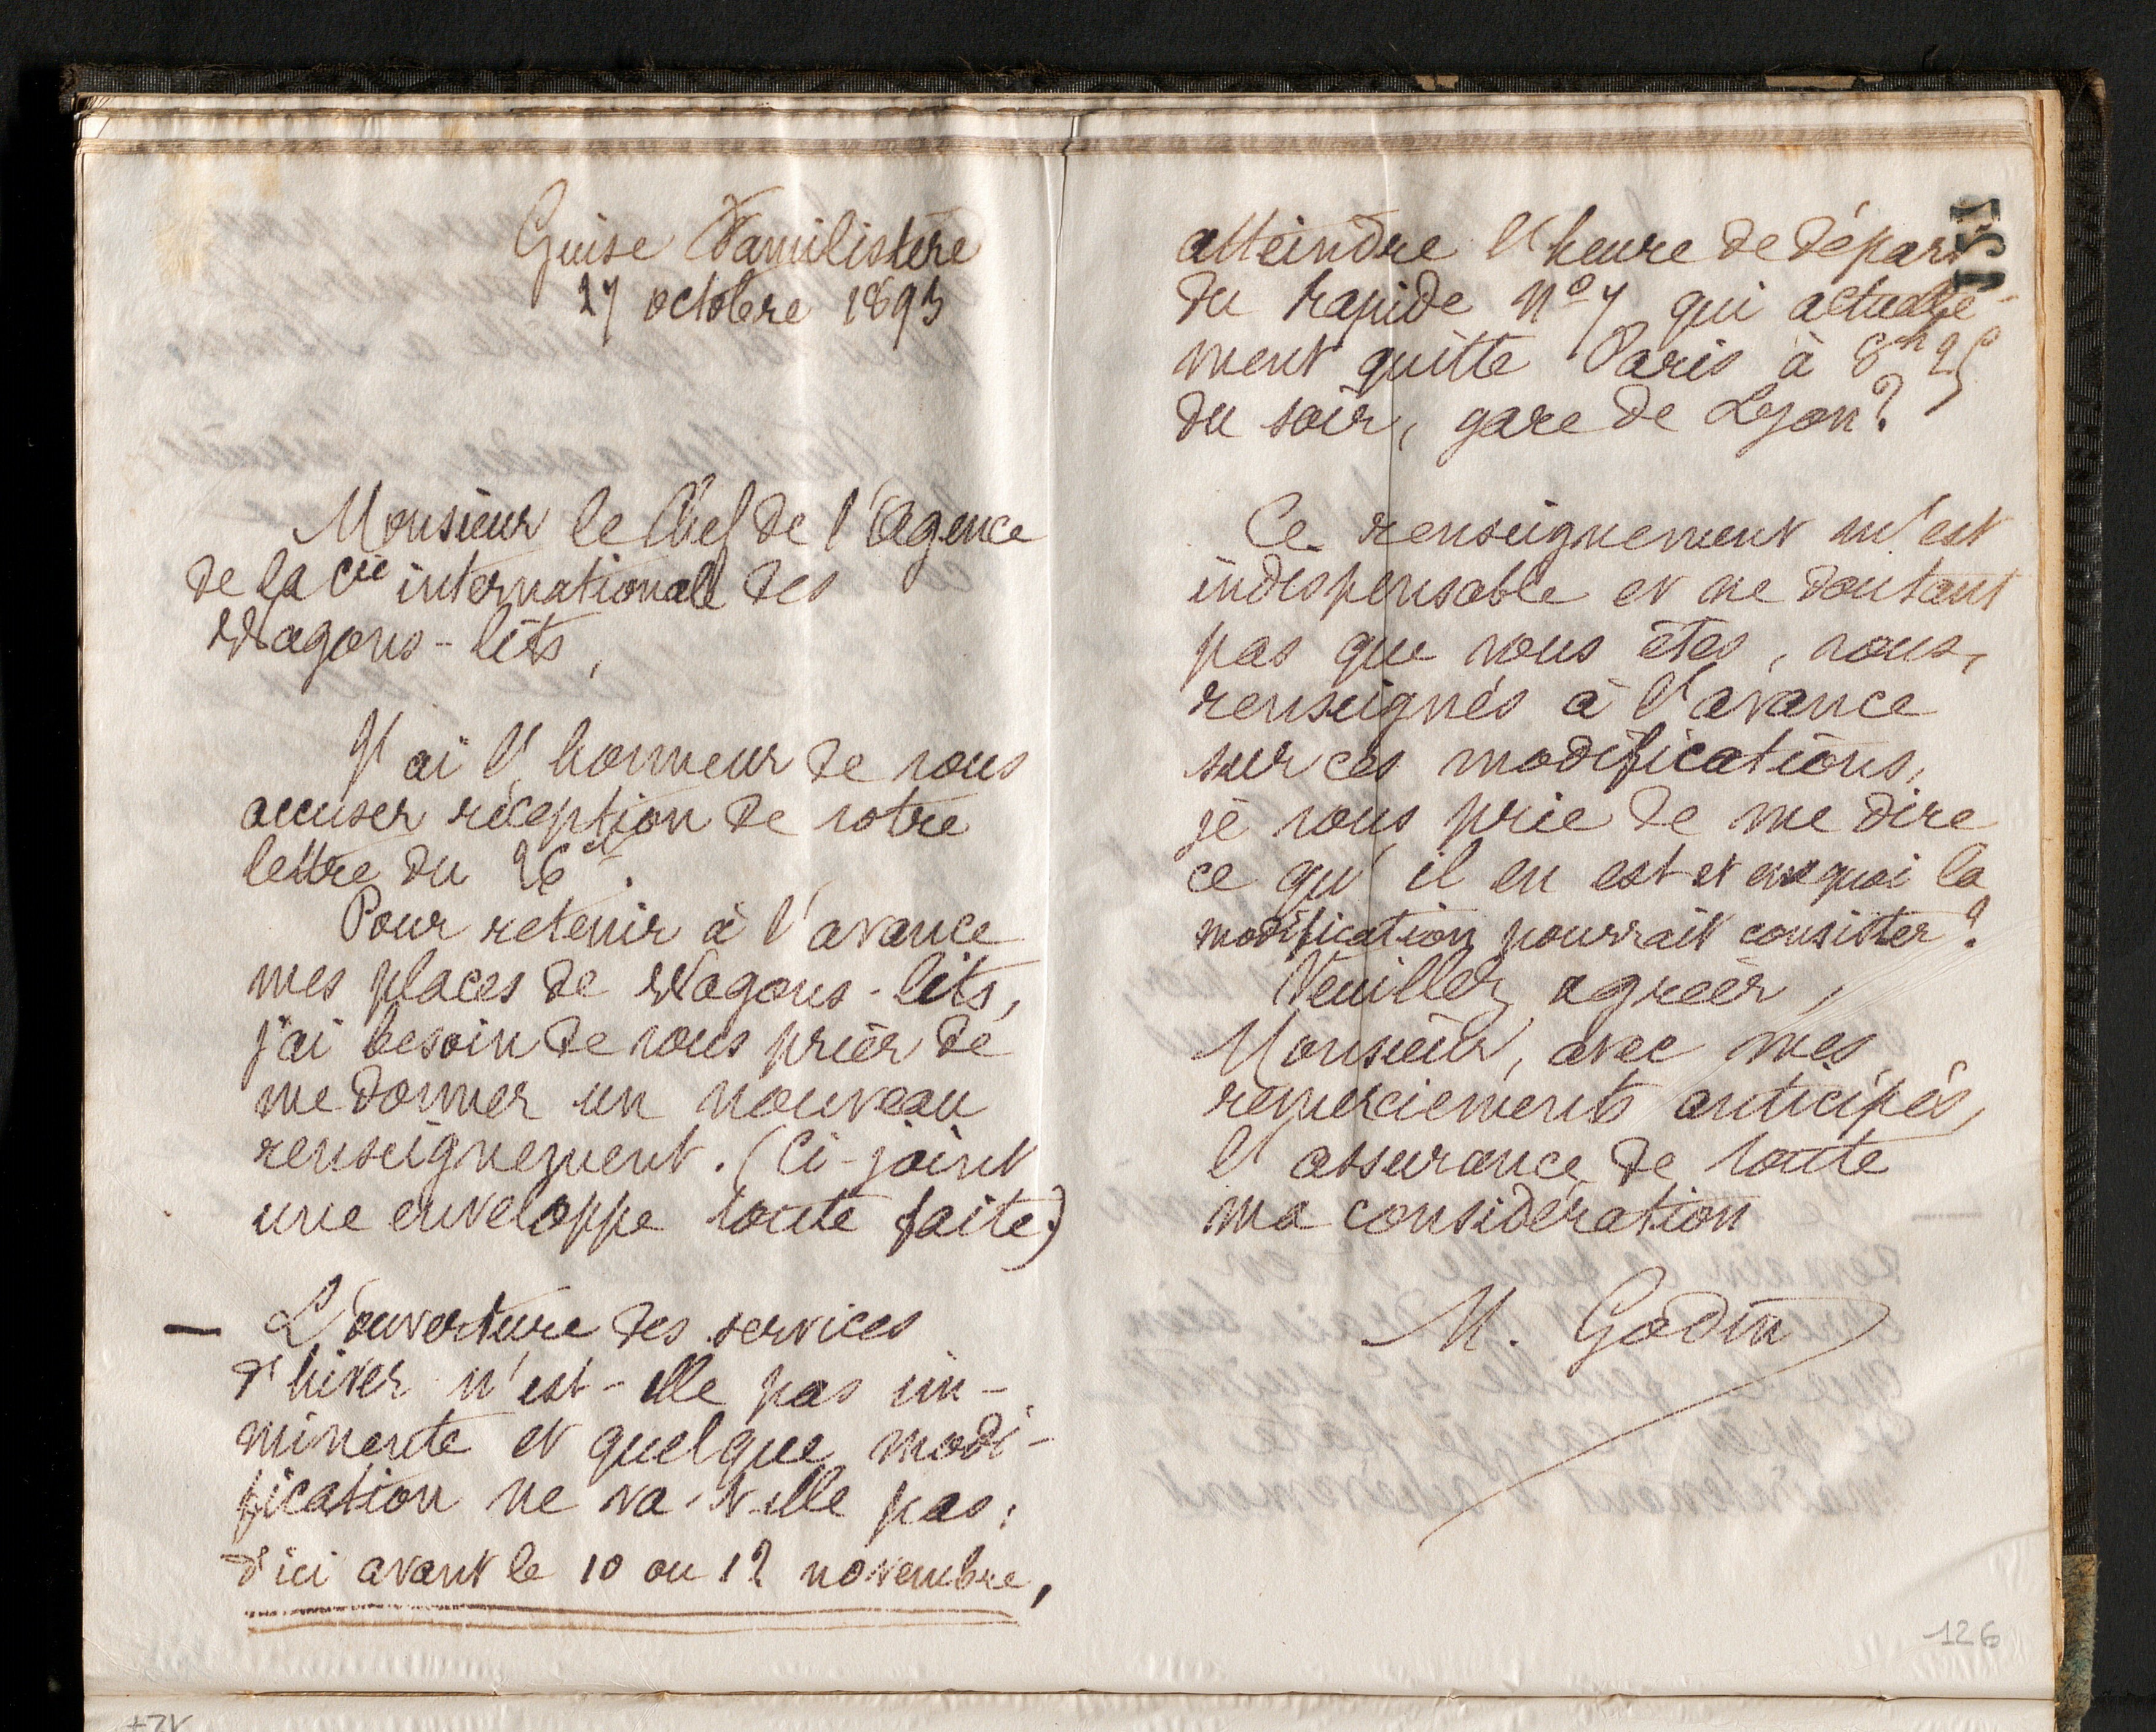 Guise Familistère
27 octobre 1893
Monsieur le Chef de l'Agence
de la Cie internationale des
Wagons-lits,
J'ai l'honneur de vous
accuser réception de votre
lettre du 26 ct.
Pour retenir à l'avance
mes places de Wagons-lits,
j'ai besoin de vous prier de
me donner un nouveau
renseignement. (Ci-joint
une enveloppe toute faite)
— L'ouverture des services
d'hiver n'est-elle pas im-
minente et quelque modi-
fication ne va-t-elle pas,
d'ici avant le 10 ou 12 novembre,
atteindre l'heure de départ
du rapide no 7 qui actuelle-
ment quitte Paris à 8h25
du soir, gare de Lyon?
Ce renseignement m'est
indispensable et ne doutant
pas que vous êtes, vous,
renseignés à l'avance
sur ces modifications,
je vous prie de me dire
ce qu'il en est et en quoi la
modification pourrait consister?
Veuillez agréer,
Monsieur, avec mes
remerciements anticipés,
l'assurance de toute
ma considération
M. Godin
126